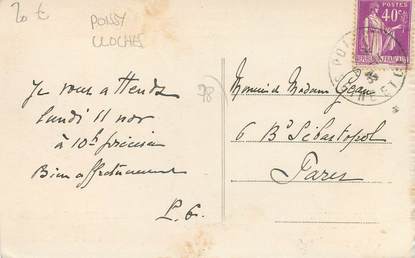 20 €
POISSY
CLOCHES
POSTES
40c
78
Je vous attends
lundi 11 nov
à 10h précises
Bien affectueusement
L. G.
Monsieur Madame Jean
6 Bd Sébastopol
Paris